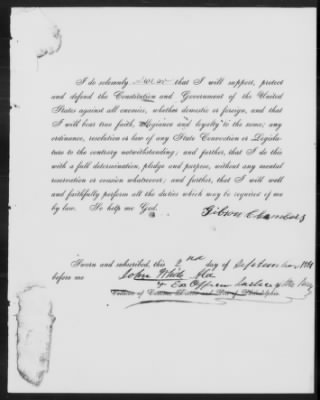 I do solemnly swear that I will support, protect
and defend the Constitution and Government of the United
States against all enemies, whether domestic or foreign, and that
I will bear true faith, allegiance and loyalty to the same, any
ordinance, resolution or law of any State Convention or Legisla-
ture to the contrary notwithstanding; and further, that I do this
with a full determination, pledge and purpose, without any mental
reservation or evasion whatsoever; and further, that I will well
and faithfully perform all the duties which may be required of me
by law. So help me God.
Gibson Chambers
Sworn and subscribed, this 2nd day of September
before me John White
& Ex Officio Justice of the Peace